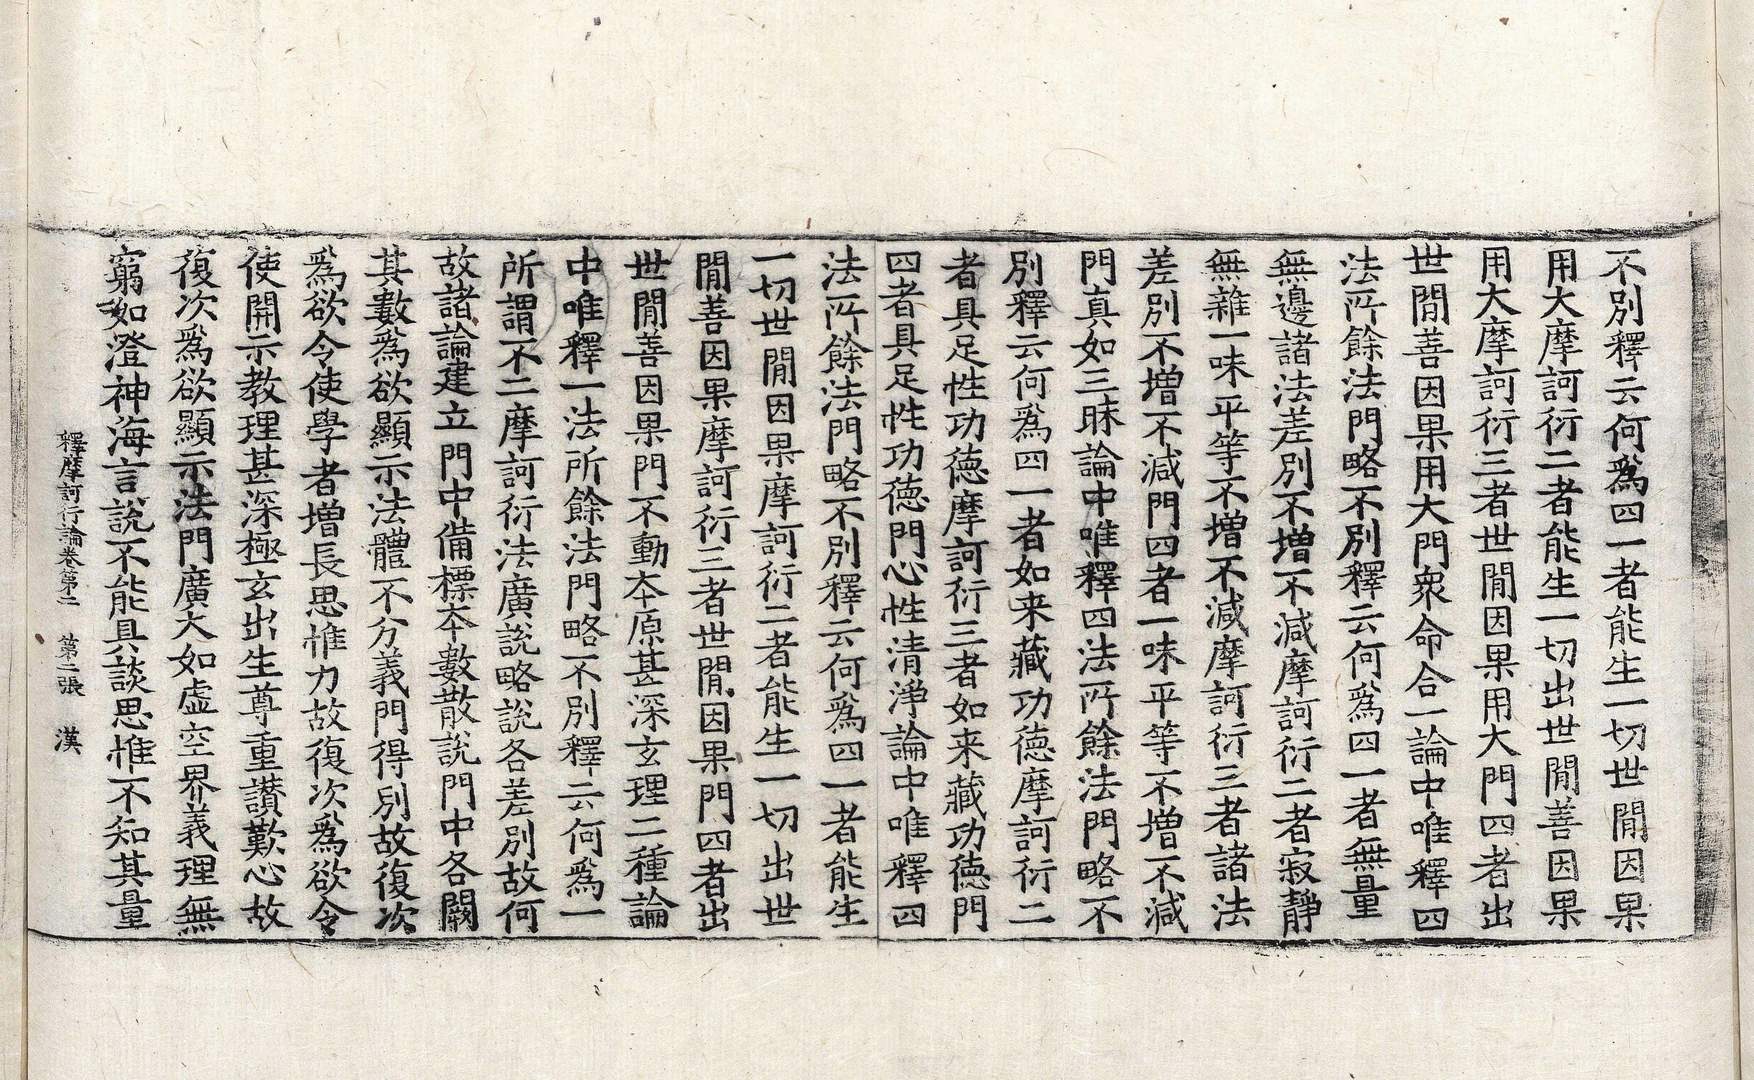 不別釋云何爲四一者能生一切世間因果
用大摩訶衍二者能生一切出世間善因果
用大摩訶衍三者世間因果用大門四者出
世間善因果用大門衆命合一論中唯釋四
法所餘法門略不別釋云何爲四一者無量
無邊諸法差別不增不減摩訶衍二者寂靜
無雜一味平等不增不減摩訶衍三者諸法
差別不增不減門四者一味平等不增不減
門真如三昧論中唯釋四法所餘法門略不
別釋云何爲四一者如来藏功德摩訶衍二
者具足性功德摩訶衍三者如来藏功德門
四者具足性功德門心性清淨論中唯釋四
法所餘法門略不別釋云何爲四一者能生
一切世間因果摩訶衍二者能生一切出世
間善因果摩訶衍三者世間因果門四者出
世間善因果門不動本原甚深玄理二種論
中唯釋一法所餘法門略不別釋云何爲一
所謂不二摩訶衍法廣說略說各差別故何
故諸論建立門中備標本數散說門中各闕
其數爲欲顯示法體不分義門得別故復次
爲欲令使學者增長思惟力故復次爲欲令
使開示教理甚深極玄出生尊重讚歎心故
復次爲欲顯示法門廣大如虛空界義理無
窮如澄神海言說不能具談思惟不知其量
釋摩訶衍論卷第二 第二張 漢